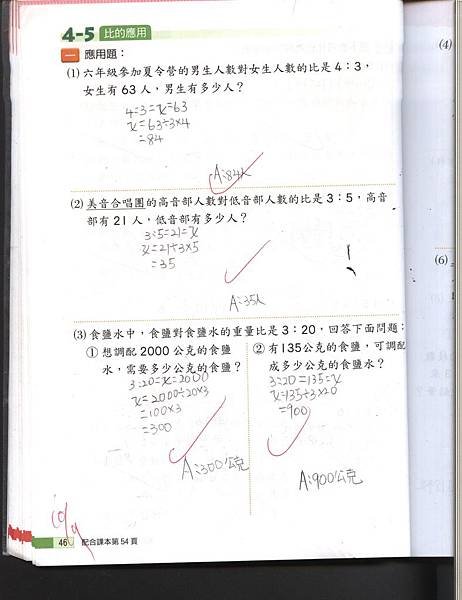 4-5 比的應用
一 應用題：
(1) 六年級參加夏令營的男生人數對女生人數的比是 4：3，
女生有 63 人，男生有多少人？
4:3=x:63
x=63÷3×4
=84
A:84人
(2) 美音合唱團的高音部人數對低音部人數的比是 3：5，高音
部有 21 人，低音部有多少人？
3:5=21=x
x=21÷3×5
=35
A:35人
(3) 食鹽水中，食鹽對食鹽水的重量比是 3：20，回答下面問題：
① 想調配 2000 公克的食鹽
水，需要多少公克的食鹽？
3:20=x=2000
x=2000÷20×3
=100×3
=300
A:300公克
② 有135公克的食鹽，可調配
成多少公克的食鹽水？
3:20=135=x
x=135÷3×20
=900
A:900公克
46 配合課本第 54 頁
(4)
(6)